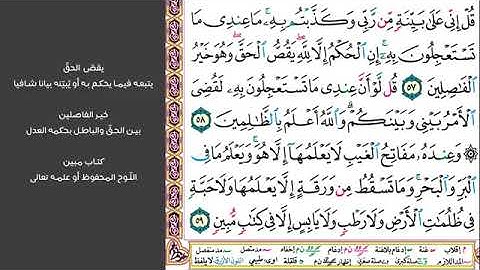 قُلْ إِنِّى عَلَىٰ بَيِّنَةٍ مِّن رَّبِّى وَكَذَّبْتُم بِهِۦ ۚ مَا عِندِى مَا
تَسْتَعْجِلُونَ بِهِۦٓ ۚ إِنِ ٱلْحُكْمُ إِلَّا لِلَّهِ ۖ يَقُصُّ ٱلْحَقَّ ۖ وَهُوَ خَيْرُ
ٱلْفَٰصِلِينَ ٥٧ قُل لَّوْ أَنَّ عِندِى مَا تَسْتَعْجِلُونَ بِهِۦ لَقُضِىَ
ٱلْأَمْرُ بَيْنِى وَبَيْنَكُمْ ۗ وَٱللَّهُ أَعْلَمُ بِٱلظَّٰلِمِينَ ٥٨
۞ وَعِندَهُۥ مَفَاتِحُ ٱلْغَيْبِ لَا يَعْلَمُهَآ إِلَّا هُوَ ۚ وَيَعْلَمُ مَا فِى
ٱلْبَرِّ وَٱلْبَحْرِ ۚ وَمَا تَسْقُطُ مِن وَرَقَةٍ إِلَّا يَعْلَمُهَا وَلَا حَبَّةٍ
فِى ظُلُمَٰتِ ٱلْأَرْضِ وَلَا رَطْبٍ وَلَا يَابِسٍ إِلَّا فِى كِتَٰبٍ مُّبِينٍ ٥٩
يقصّ الحقّ
يتبعه فيما يحكم به أو يُبيّنه بيانا شافيا
خير الفاصلين
بين الحقّ والباطل بحكمه العدل
كتاب مبين
اللّوح المحفوظ أو علمه تعالى